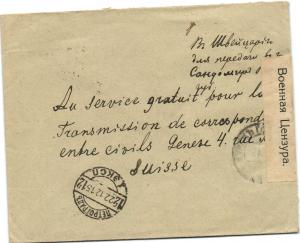 Въ Швейцарію
для передачи в г.
Сандомиръ
Au service gratuit pour la
Transmission de correspond
entre civils Genève 4. rue
Suisse
Военная Цензура.
ПЕТРОГРАДЪ
22 12 15